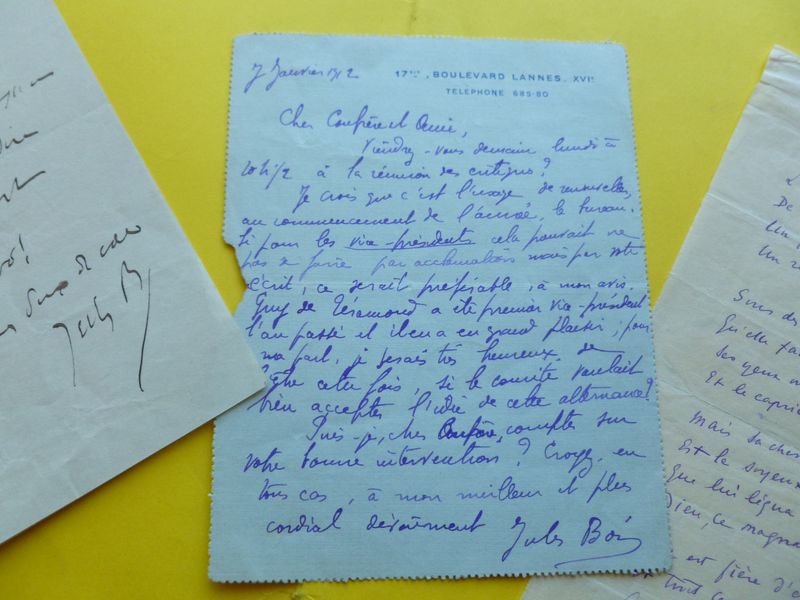 7 Janvier 1912
17 BIS, BOULEVARD LANNES. XVIE
TÉLÉPHONE 685-80
Cher Confrère et Ami,
Viendrez-vous demain lundi à
10 h 1/2 à la réunion des critiques?
Je crois que c'est l'usage de renouveler,
au commencement de l'année, le bureau.
Si pour les vice-présidents cela pouvait ne
pas se faire par acclamation mais par vote
écrit, ce serait préférable, à mon avis.
Guy de Téramond a été premier vice-président
l'an passé et il en a eu grand plaisir; pour
ma part, je serais très heureux de
l'être cette fois, si le comité voulait
bien accepter l'idée de cette alternance?
Puis-je, cher Confrère, compter sur
votre bonne intervention? Croyez, en
tous cas, à mon meilleur et plus
cordial dévouement
Jules Bois
Jules B
De
Un
Un
Sous des
Qu'elle
Ses yeux
Et le capric
Mais sa cher
Est la soyeux
Que lui ligna
Dieu, ce magna
est fière d'